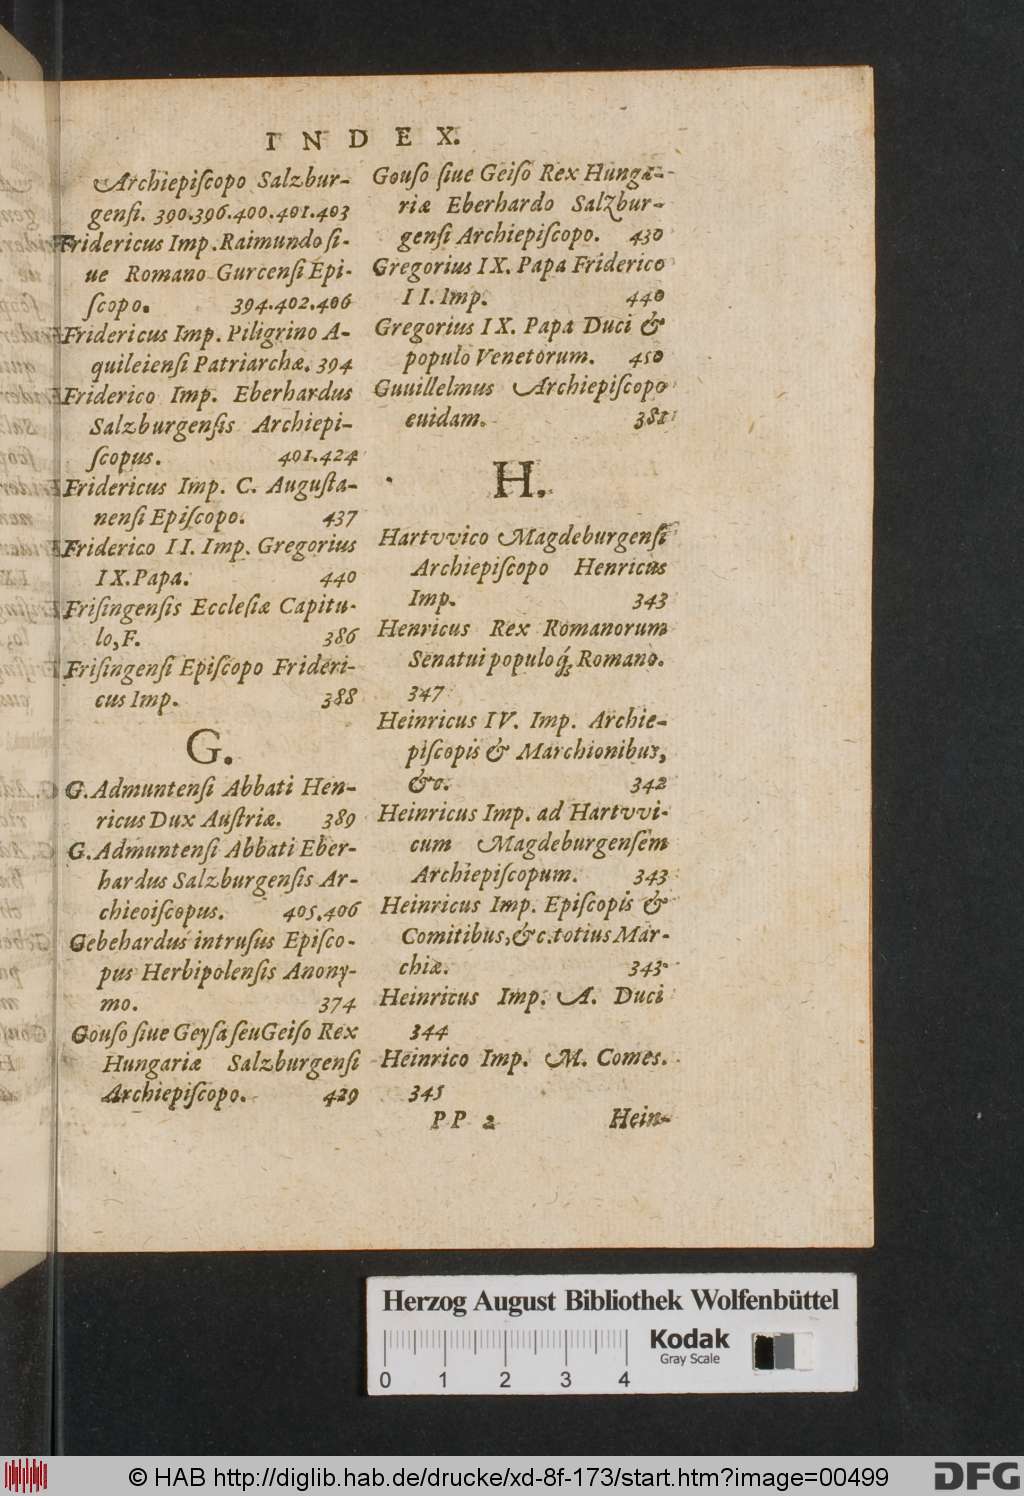 INDEX.
Archiepiſcopo Salzbur-
genſi. 390.396.400.401.403
Fridericus Imp. Raimundo ſi-
ue Romano Gurcenſi Epi-
ſcopo. 394.402.406
Fridericus Imp. Piligrino A-
quileienſi Patriarchæ. 394
Friderico Imp. Eberhardus
Salzburgenſis Archiepi-
ſcopus. 401.424
Fridericus Imp. C. Auguſta-
nenſi Epiſcopo. 437
Friderico II. Imp. Gregorius
IX. Papa. 440
Friſingenſis Eccleſiæ Capitu-
lo, F. 386
Friſingenſi Epiſcopo Frideri-
cus Imp. 388
G.
G. Admuntenſi Abbati Hen-
ricus Dux Auſtriæ. 389
G. Admuntenſi Abbati Eber-
hardus Salzburgenſis Ar-
chieoiſcopus. 405.406
Gebehardus intruſus Epiſco-
pus Herbipolenſis Anony-
mo. 374
Gouſo ſiue Geyſa ſeu Geiſo Rex
Hungariæ Salzburgenſi
Archiepiſcopo. 429
Gouſo ſiue Geiſo Rex Hungæ-
riæ Eberhardo Salzbur-
genſi Archiepiſcopo. 430
Gregorius IX. Papa Friderico
II. Imp. 440
Gregorius IX. Papa Duci &
populo Venetorum. 450
Guuillelmus Archiepiſcopo
cuidam. 381
H.
Hartvvico Magdeburgenſi
Archiepiſcopo Henricus
Imp. 343
Henricus Rex Romanorum
Senatui populoq́; Romano.
347
Heinricus IV. Imp. Archie-
piſcopis & Marchionibus,
&c. 342
Heinricus Imp. ad Hartvvi-
cum Magdeburgenſem
Archiepiſcopum. 343
Heinricus Imp. Epiſcopis &
Comitibus, &c. totius Mar-
chiæ. 343
Heinricus Imp. A. Duci
344
Heinrico Imp. M. Comes.
345
PP 2 Hein-
Herzog August Bibliothek Wolfenbüttel
Kodak
Gray Scale
0 1 2 3 4
© HAB http://diglib.hab.de/drucke/xd-8f-173/start.htm?image=00499
DFG